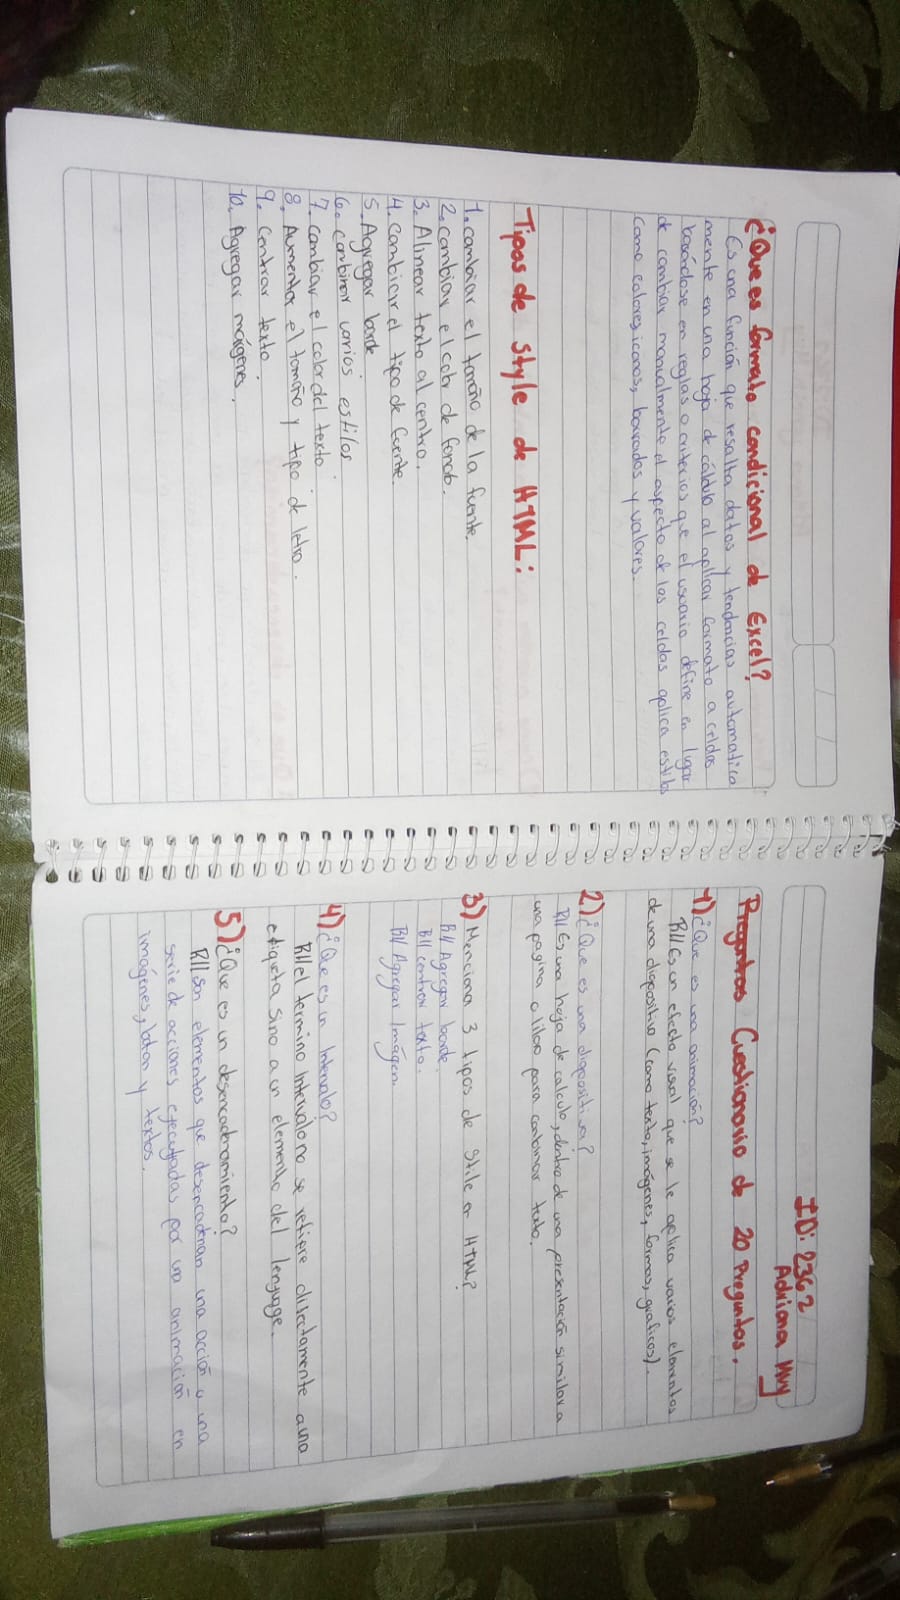 ¿Que es formato condicional de Excel?
Es una función que resalta datos y tendencias automatica
mente en una hoja de cálculo al aplicar formato a celdas
basándose en reglas o criterios que el usuario define en lugar
de cambiar manualmente el aspecto de las celdas aplica estilos
como colores, iconos, bordados y valores.
Tipos de Style de HTML:
1. cambiar el tamaño de la fuente.
2. cambiar el color de fondo.
3. Alinear texto al centro.
4. Cambiar el tipo de fuente.
5. Agregar borde
6. combinar varios estilos.
7. cambiar el color del texto
8. Aumentar el tamaño y tipo de letra.
9. Centrar texto.
10. Agregar márgenes.
ID: 2362
Adriana
Preguntas Cuestionario de 20 Preguntas.
1) ¿Que es una animación?
R// Es un efecto visual que se le aplica varios elementos
de una diapositiva (como texto, imágenes, formas, graficos).
2) ¿Que es una diapositiva?
R// Es una hoja de calculo, dentro de una presentación similar a
una pagina o libro para combinar texto.
3) Menciona 3 tipos de Stile en HTML?
R// Agregar borde.
R// centrar texto.
R// Agregar Imágen.
4) ¿Que es un Intervalo?
R// el termino Intervalo no se refiere directamente a una
etiqueta sino a un elemento del lenguage.
5) ¿Que es un desencadenamiento?
R// son elementos que desencadenan una acción o una
serie de acciones ejecutadas por una animación en
imágenes, botan y textos.